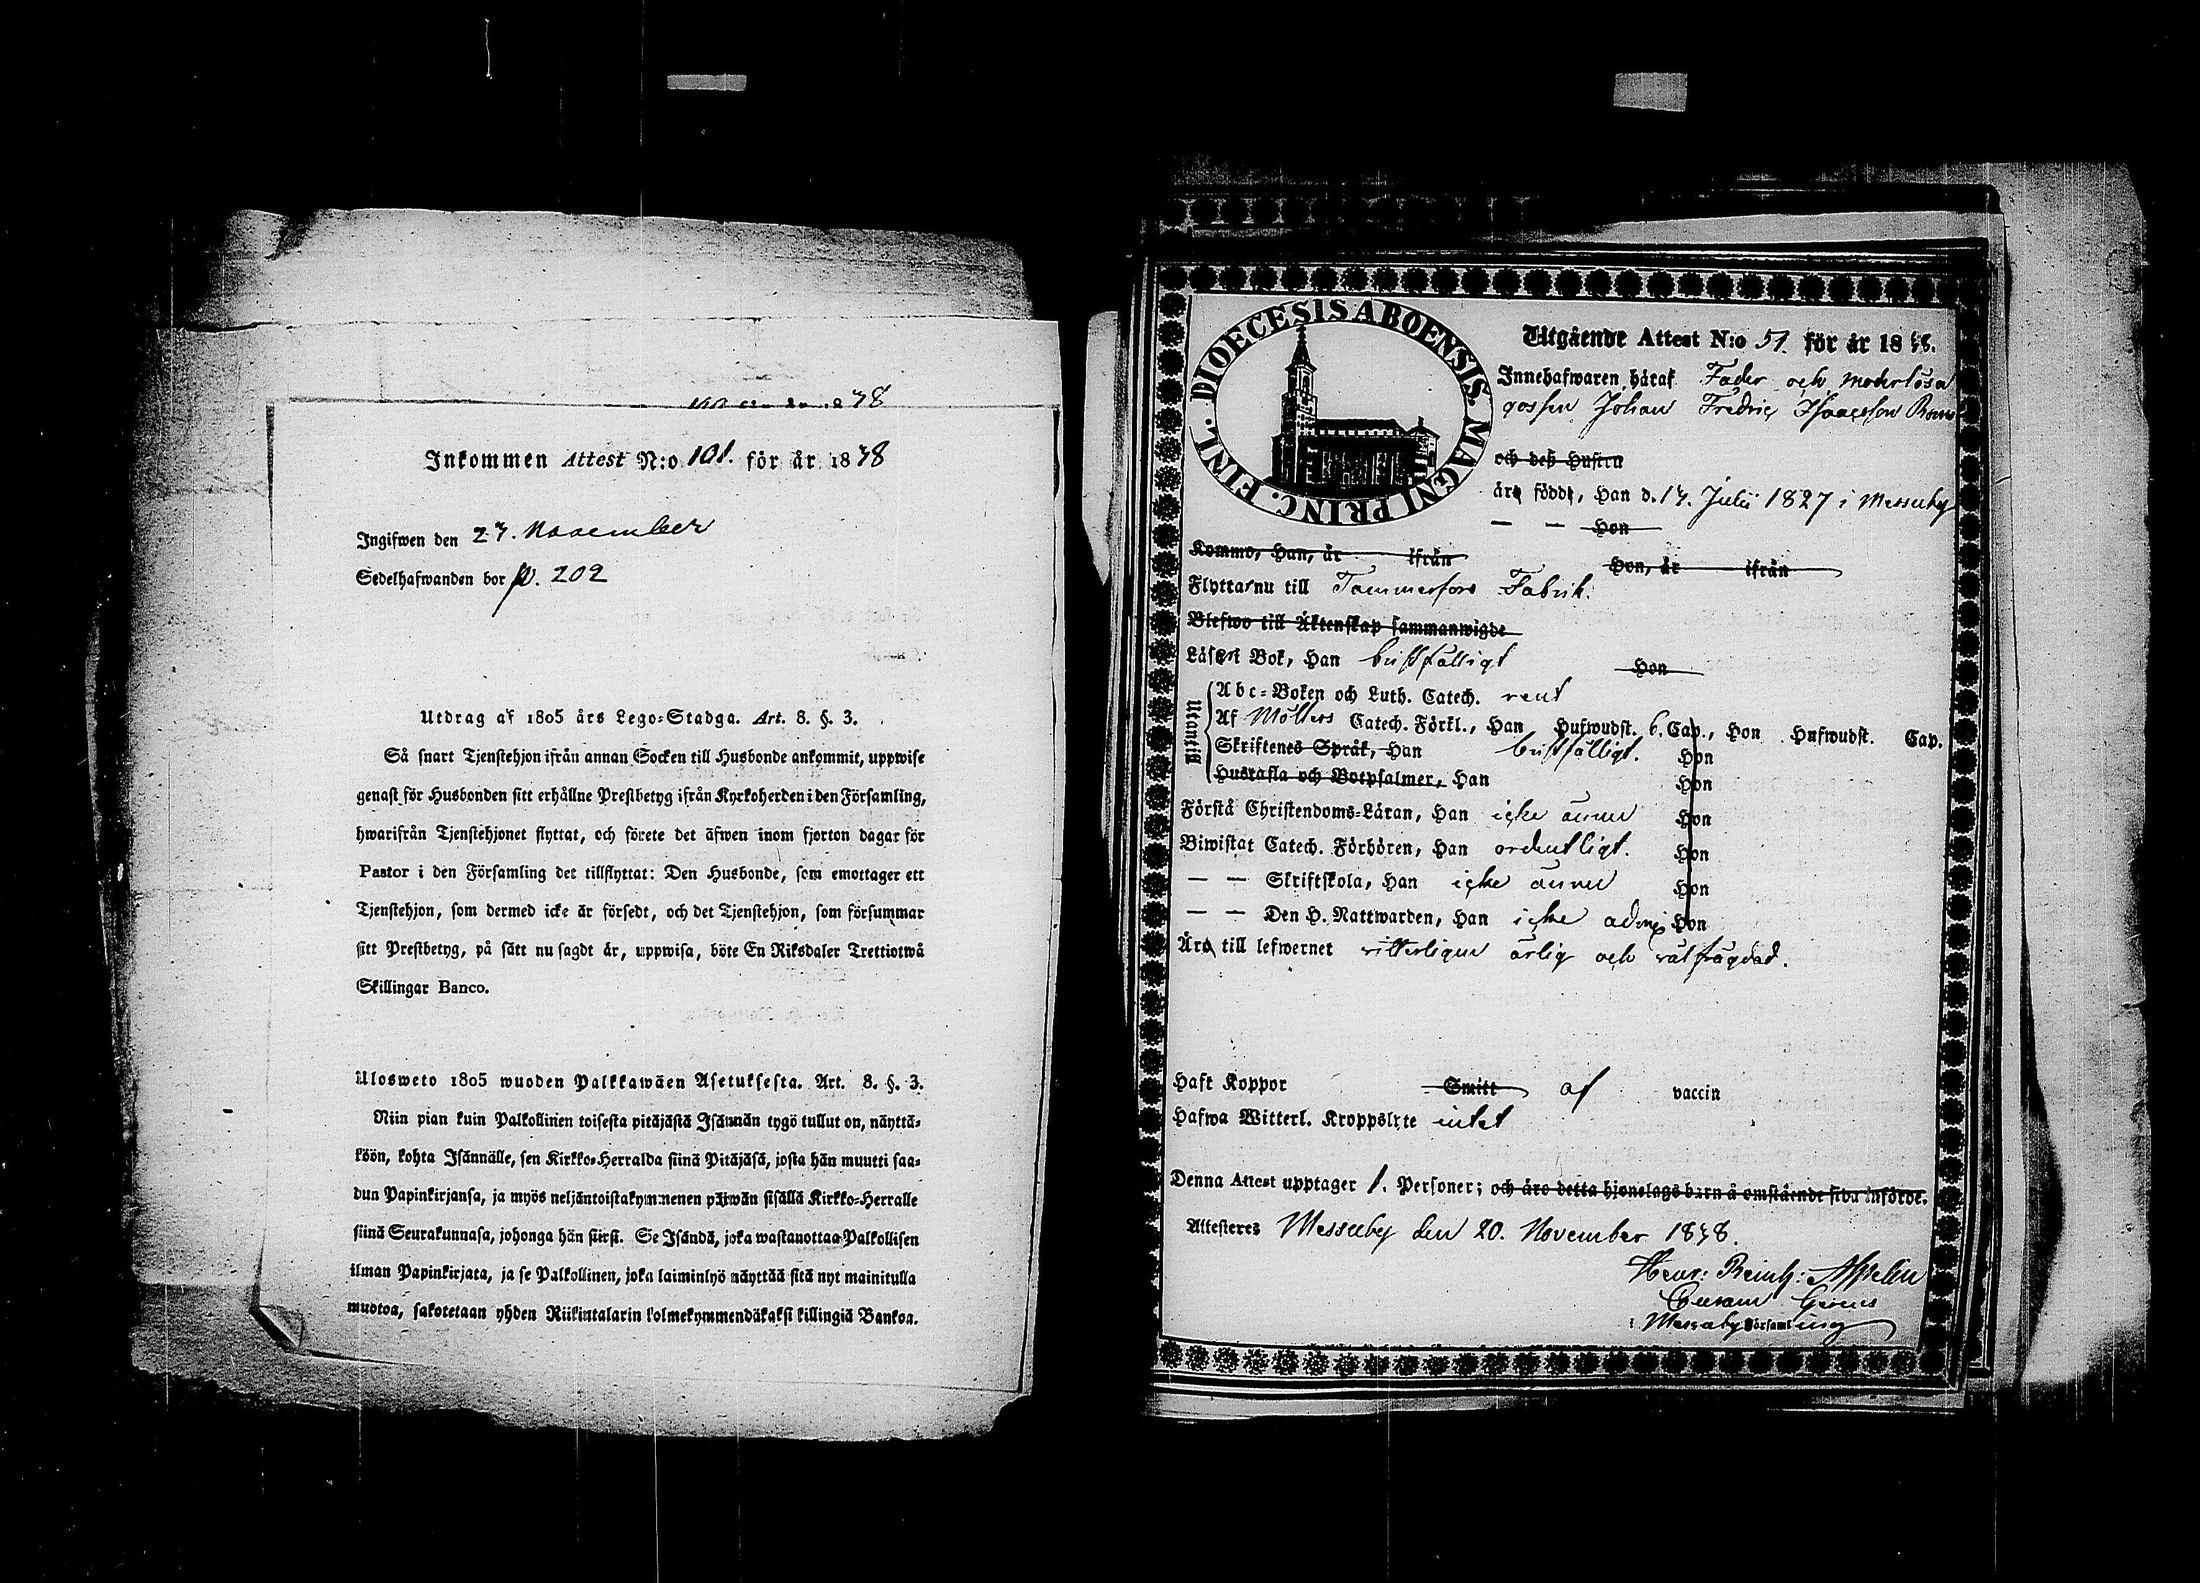 1878
Inkommen Attest N:o 101. för år 1848
Ingifwen den 27. November
Sedelhafwanden bor p. 202
Utdrag af 1805 års Lego-Stadga. Art. 8. §. 3.
Så snart Tjenstehjon ifrån annan Socken till Husbonde ankommit, uppwise
genast för Husbonden sitt erhållne Prestbetyg ifrån Kyrkoherden i den Församling,
hwarifrån Tjenstehjonet flyttat, och förete det äfwen inom fjorton dagar för
Pastor i den Församling det tillflyttat: Den Husbonde, som emottager ett
Tjenstehjon, som dermed icke är försedt, och det Tjenstehjon, som försummar
sitt Prestbetyg, på sätt nu sagdt är, uppwisa, böte En Riksdaler Trettiotwå
Skillingar Banco.
Ulosweto 1805 wuoden Palkkawäen Asetuksesta. Art. 8. §. 3.
Niin pian kuin Palkollinen toisesta pitäjästä Isännän tygö tullut on, näyttä-
köön, kohta Isännälle, sen Kirkko-Herralda siinä Pitäjäsä, josta hän muutti saa-
dun Papinkirjansa, ja myös neljäntoistakymmenen päiwän sisällä Kirkko-Herralle
siinä Seurakunnasa, johonga hän siirsi. Se Isändä, joka wastauottaa Palkollisen
ilman Papinkirjata, ja se Palkollinen, joka laiminlyö näyttää sitä nyt mainitulla
muotoa, sakotetaan yhden Riikintalarin kolmekymmendäkaksi killingiä Bankoa.
DIOECESIS ABOENSIS. MAGNI PRINC. FINL.
Utgående Attest N:o 51. för år 1848.
Innehafwaren häraf Fader och moderlösa
gossen Johan Fredric Isaacsson
och deß Hustru
äro födde, Han d. 14. Julii 1827 i Messuby
— — Hon
Kommo, Han, år ifrån Hon, år ifrån
Flytta nu till Tammerfors Fabrik.
Blefwo till Äktenskap sammanwigde
Läser i Bok, Han bristfälligt Hon
Utantill
Abc-Boken och Luth. Catech. rent
Af Möllers Catech. Förkl., Han Hufwudst. 6. Cap., Hon Hufwudst. Cap.
Skriftenes Språk, Han bristfälligt. Hon
Hustafla och Botpsalmer, Han Hon
Förstå Christendoms-Läran, Han icke ännu Hon
Biwistat Catech. Förhören, Han ordentligt. Hon
— — Skriftskola, Han icke ännu Hon
— — Den H. Nattwarden, Han icke adm. Hon
Äro till lefwernet witterligen ärlig och wälfrägdad.
Haft Koppor Smitt af vaccin
Hafwa Witterl. Kroppslyte intet
Denna Attest upptager 1. Personer; och äro detta hjonelags barn å omstående sida införde.
Attesteres Messuby den 20. November 1848.
Henr: Reinh: Appelin
Curam Gerens
i Messuby Församling